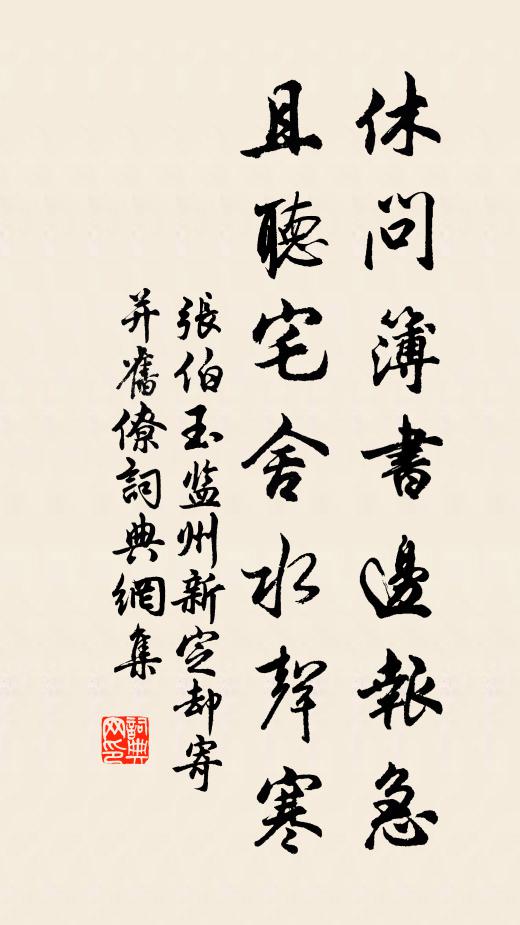 休問簿書邊報急
且聽宅舍水聲寒
張伯玉监州新定却寄
并舊僚詞典網集
詞典網印